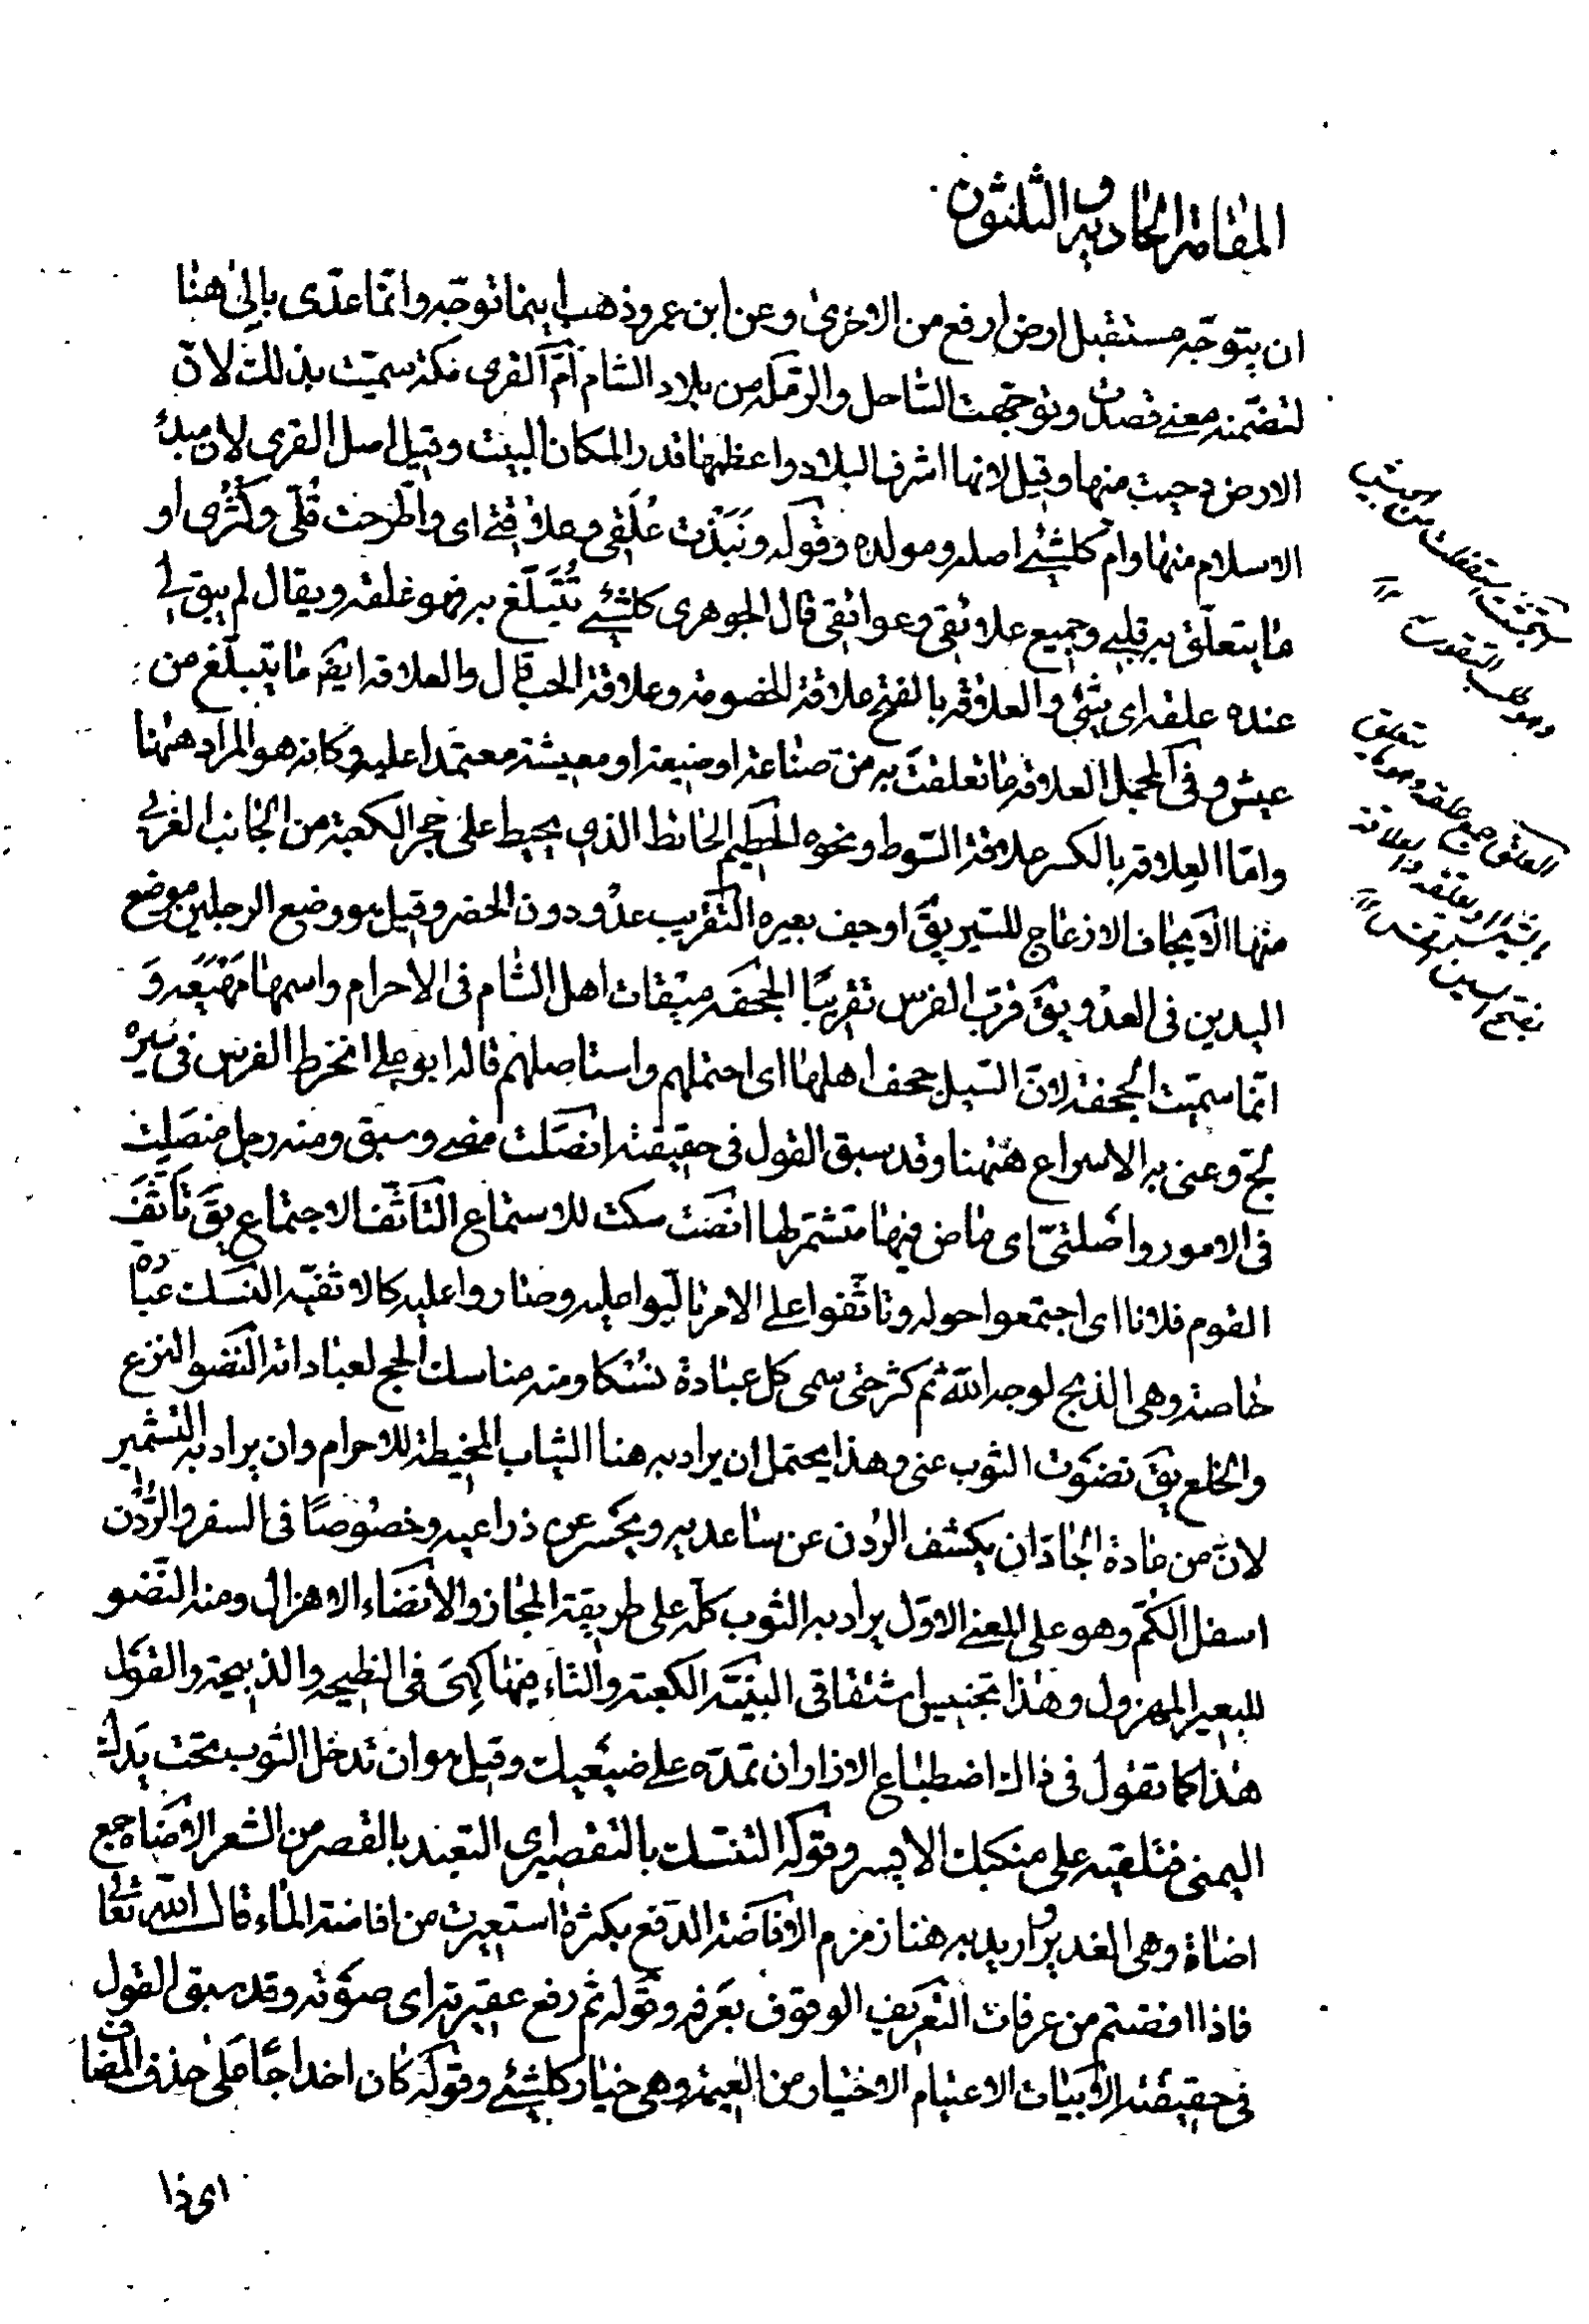 المقامة الحادية والثلثون
ان يتوجّه مستقبل ارض ارفع من الاخرى وعن ابن عمرو ذهب اينما توجّه وانّما عدّى بالى هنا
لتضمّنه معنى قصدت وتوجّهت الساحل والرّملة من بلاد الشام امّ القرى مكة سمّيت بذلك لانّ
الارض دحيت منها وقيل لانها اشرف البلاد واعظمها قدرا لمكان البيت وقيل اصل القرى لان مبدئ
الاسلام منها وام كلشئ اصله ومولده وقوله ونَبَذْت عُلَقى وعلاقتى اى واطّرحت قُلّى وكُثْرى او
ما يتعلّق به قلبى وجميع علائقى وعوائقى قال الجوهرى كلشئ يُتَبَلّغ به فهو علقة ويقال لم يبق لى
عنده علقة اى شئ والعلاقة بالفتح علاقة الخصومة وعلاقة الحب قال والعلاقة ايضا ما يتبلّغ من
عيش وفى المجمل العلاقة ما تعلقتَ به من صناعة او ضيعة او معيشة معتمدا عليه وكانه هو المراد ههنا
وامّا العِلاقة بالكسر علاقة السّوط ونحوه الحطيم الحائط الذى يحيط على حجر الكعبة من الجانب الغربى
منها الايجاف الازعاج للسير يقَ اوجف بعيره التّقريب عدْو دون الحضر وقيل هو وضع الرجلين موضع
اليدين فى العدْو يقَ قرّب الفرس تقريبًا الجحفة ميقات اهل الشام فى الاحرام واسمها مَهْيَعة وَ
انّما سمّيت الجحفة لانّ السّيل جحف اهلها اى احتملهم واستاصلهم قاله ابو على انخرط الفرس فى سَيْره
لجّ وعنى به الاسراع ههنا وقد سبق القول فى حقيقته انصَلت مضى وسبق ومنه رجل منصَلِت
فى الامور واصْلتىّ اى ماض فيها متشمّر لها انصَت سكت للاستماع التّاثّف الاجتماع يقَ تاثّفَ
القوم فلانا اى اجتمعوا حوله وتاثّفوا على الامر تالّبوا عليه وصاروا عليه كالاثفيّة النسك عبادة
خاصة وهى الذبح لوجه اللّه ثم كثر حتى سمى كل عبادة نسُكا ومنه مناسك الحج لعباداته النّضو النزع
والخلع يقَ نضَوت الثوب عنى وهذا يحتمل ان يراد به هنا الثياب المخيطة للاحرام وان يراد به التشمير
لانّ من عادة الجادّ ان يكشف الردن عن ساعديه ويحسر عن ذراعيه وخصُوصًا فى السفر والرُّدْن
اسفل الكُمّ وهو على المعنى الاوّل يراد به الثوب كلّه على طريقة المجاز والانضاء الاهزال ومنه النّضو
للبعير المهزول وهذا تجنيس اشتقاقى البَنيّة الكعبة والتاء فيها كهِىَ فى النطيحة والذبيحة والقول
هذا كما تقول فى ذاك اضطباع الازار ان تمدّه على ضبعيك وقيل هو ان تدخل الثوب تحت يَدك
اليمنى فتلقيه على منكبك الايسر وقوله التنسّك بالتقصير اى التعبد بالقصر من الشعر الاضاة جمع
اضاة وهى الغدير واريد به هنا زمزم الافاضة الدّفع بكثرة استعيرت من افاضة الماء قال اللّه تعالى
فاذا افضتم من عرفات التّعريف الوقوف بعَرفة وقوله ثم رفع عقيرته اى صوته وقد سبق القول
فى حقيقته الابيات الاعتيام الاختيار من العيمة وهى خيار كلشئ وقوله كان اخداجًا على حذف المضاف
اى ذا
تعلق
العلق جمع علقة وهو ما